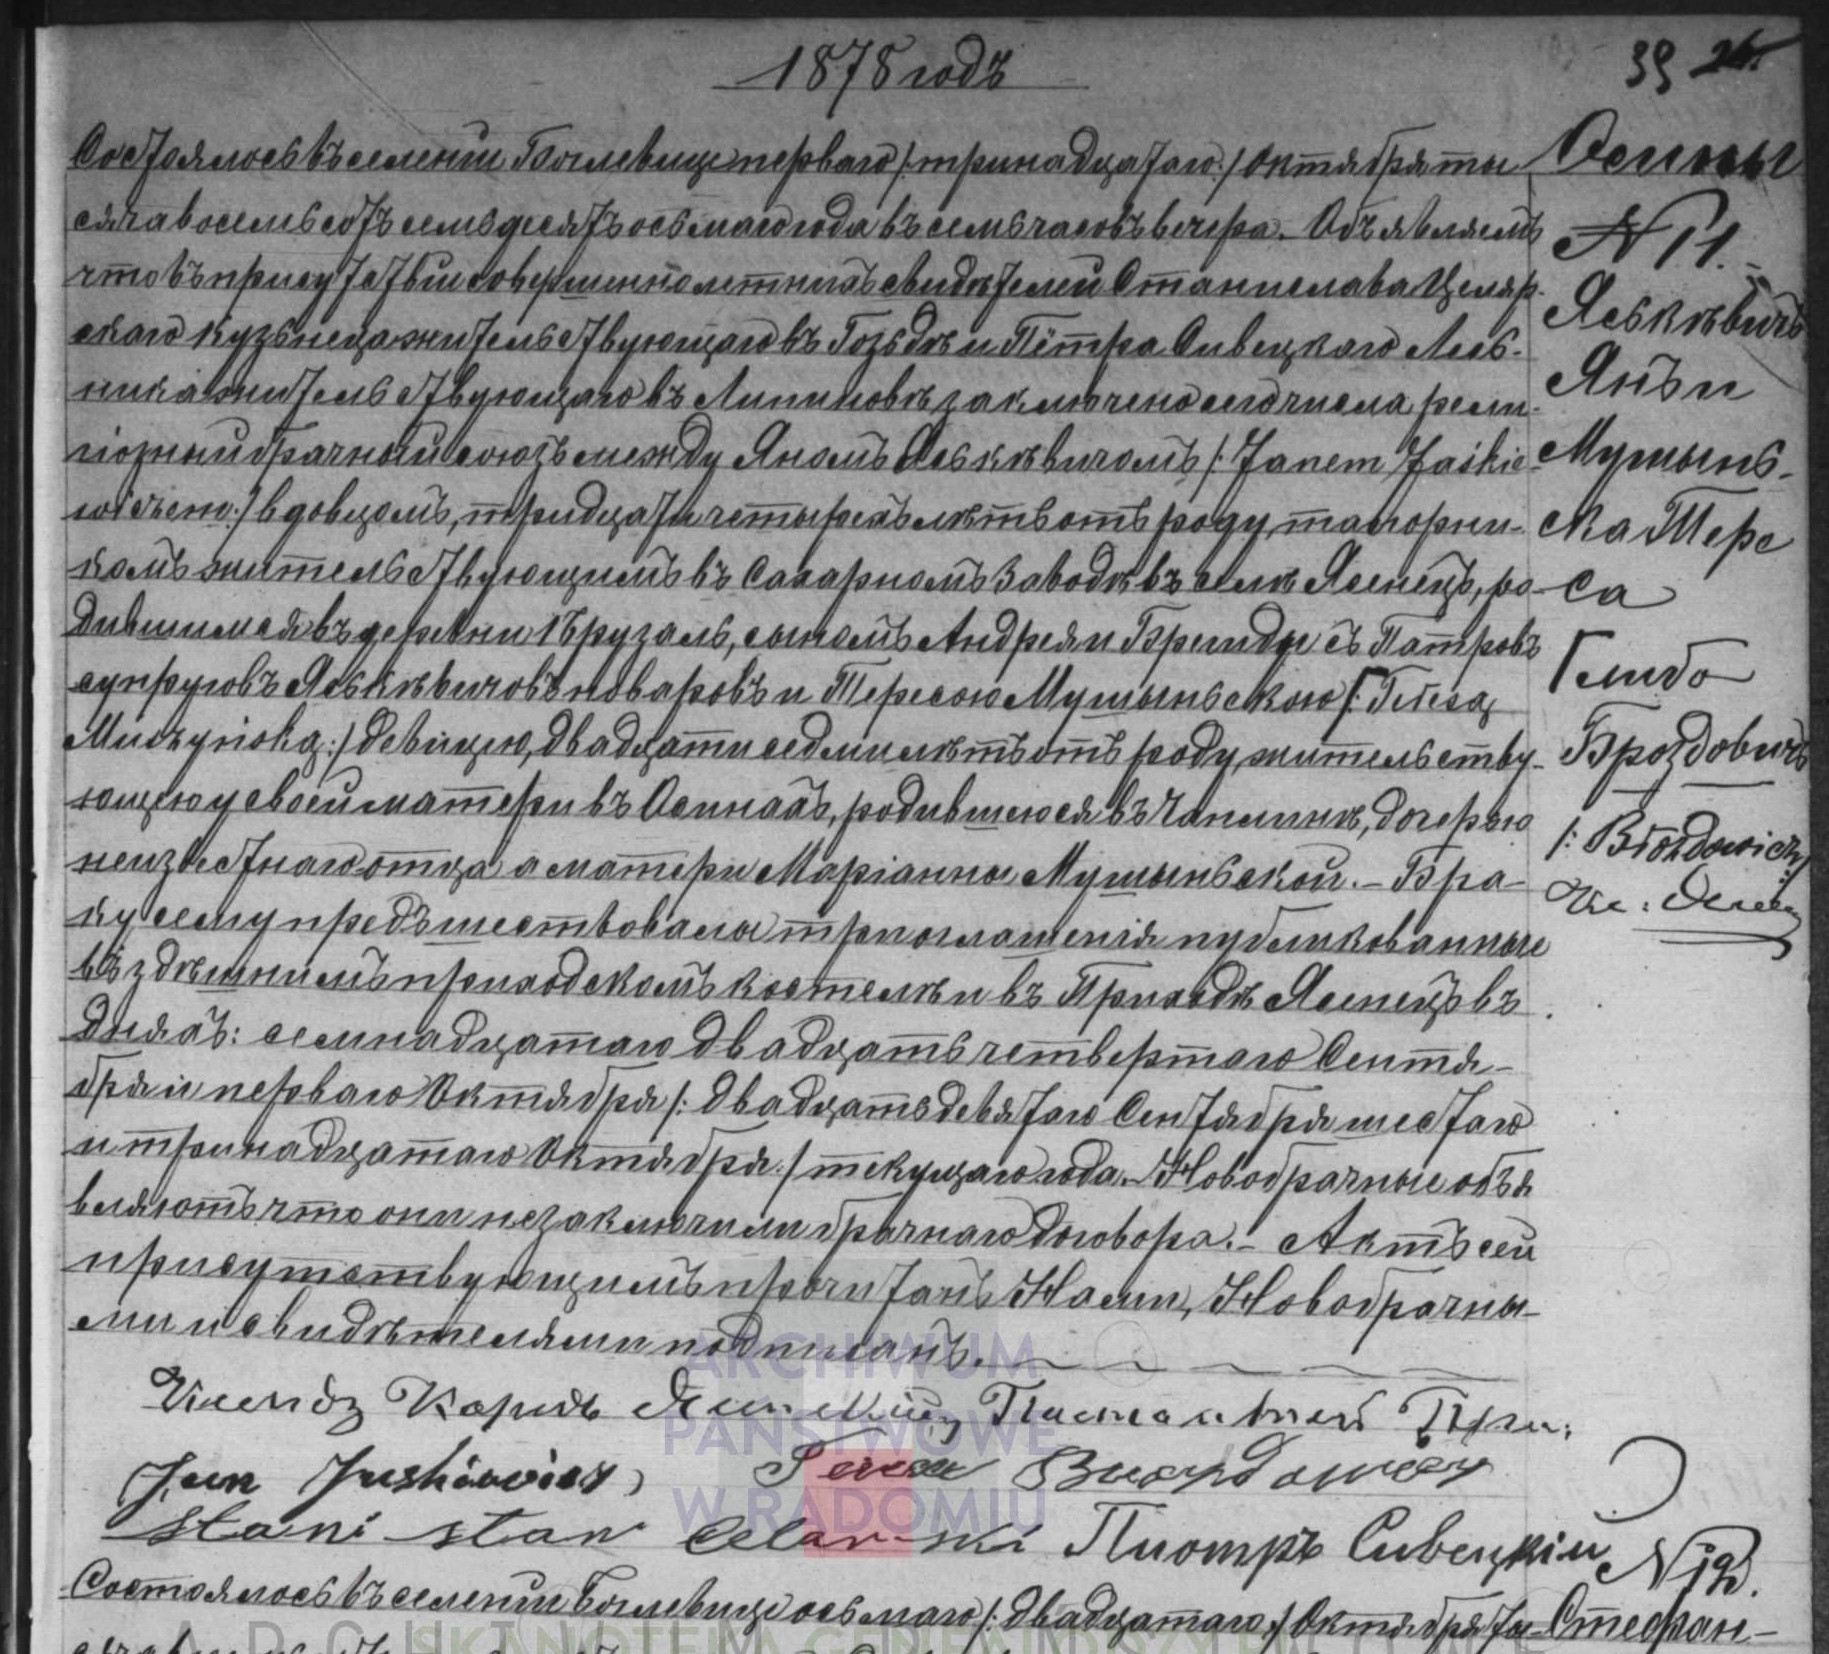 1878 годъ
39 26.
Состоялось въ селении Боглевице перваго /: тринадцатаго :/ Октября ты
сяча восемьсотъ семьдесятъ осьмаго года въ семь часовъ вечера. – Объявляемъ
что въ присутствии совершеннолетнихъ свидѣтелей Станислава Целяр-
скаго кузьнеца жительствующаго въ Гозьдѣ и Пётра Сивецкаго Лесь-
ника жительствующаго въ Липиновѣ заключено сего числа рели-
гіозный брачный союзъ между Яномъ Яськѣвичомъ /: Janem Jaśkie-
wiczem :/ вдовцомъ, тридцати четырехъ лѣтъ отъ роду,
комъ жительствующимъ въ Сахарномъ Заводѣ въ селѣ Ясенецъ, ро-
дившимся въ деревни Крузаль, сыномъ Андрея и съ Патровъ
супруговъ Яськѣвичовъ поваровъ и Тересою Мушыньскою /: Teresą
Muszyńską :/ девицею, двадцати седми лѣтъ отъ роду, жительству-
ющею у своей матери въ Осинахъ, родившеюся въ Чаплинѣ, дочерью
неизвестнаго отца а матери Маріанны Мушыньской. – Бра-
ку сему предъшествовалы три оглашенія публикованные
въ здѣшнимъ приходскомъ костелѣ и въ Приходѣ Ясенецъ въ
дняхъ: семнадцатаго двадцать четвертаго Сентя-
бря и перваго Октября /: двадцать девятаго Сентября шестаго
и тринадцатаго Октября :/ текущаго года. – Новобрачные объя
вляютъ что они незаключили брачнаго договора. – Актъ сей
присутствующимъ прочитанъ Нами, Новобрачны-
ми и свидѣтелями подписанъ.
Ксендз Кароль
Jan Jaskiewicz Teresa
Stanisław Celarski Пиотръ Сивецкій
Осины
N 11.
Яськѣвичъ
Янъ и
Мушынь-
ска Тере
са
Глибо
Броздовичъ
/: Brozdowicz :/
N 12.
Состоялось въ селении Боглевице осьмаго /: двадцатаго :/ Октября ты-
Стефан-
ARCHIWUM
PAŃSTWOWE
W RADOMIU
SKANOTEKA